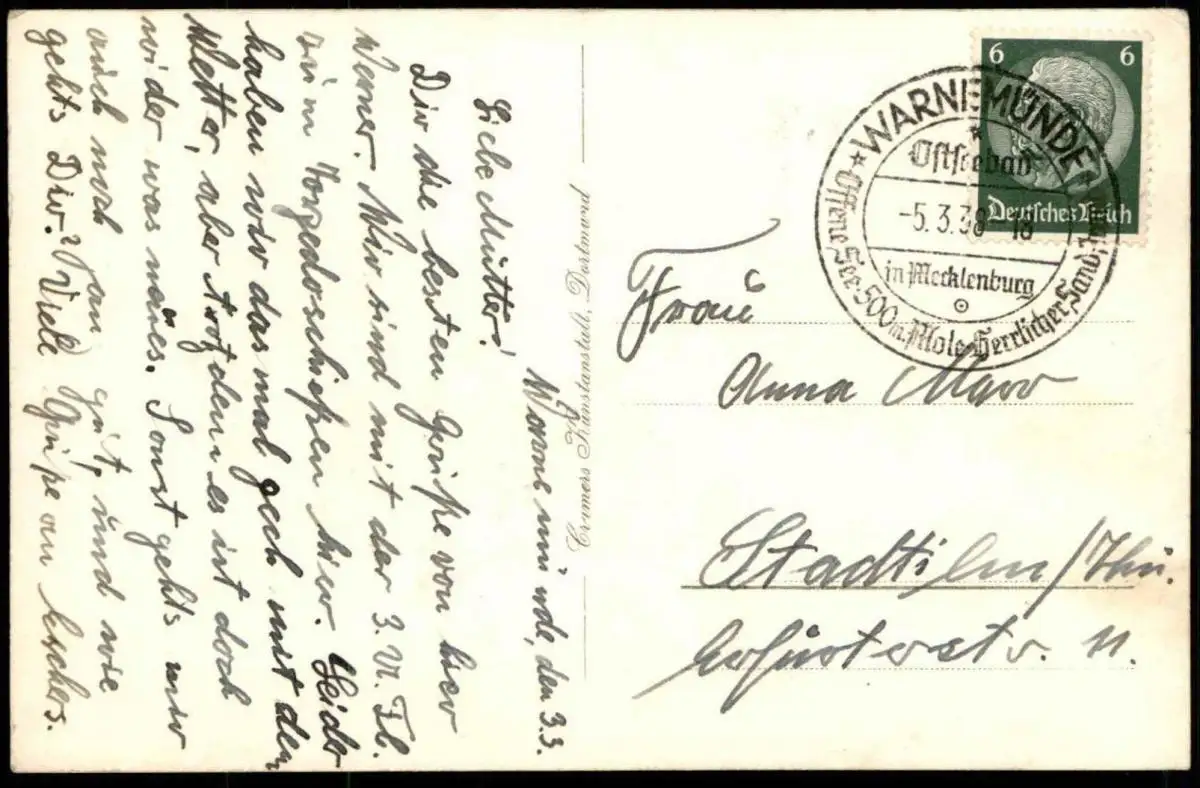 Warnemünde, den 3.3.
Liebe Mutter!
Dir die besten Grüße von hier
Werner. Wir sind mit der 3. Vl. Fl.
zum Torpedoschießen hier. Leider
haben wir das mal Pech mit dem
Wetter, aber trotzdem es ist doch
wider was neües. Sonst gehts mir
auch noch gut, und wie
gehts Dir? Viele Grüße an
Cramers Kunstanstalt, Dortmund
6 6
Deutsches Reich
WARNEMÜNDE
Ostseebad
-5.3.38-18
in Mecklenburg
Offene See, 500 m. Mole, Herrlicher Sand,
Frau
Anna Marr
Stadtilm/Thü.
Erfurterstr. 11.